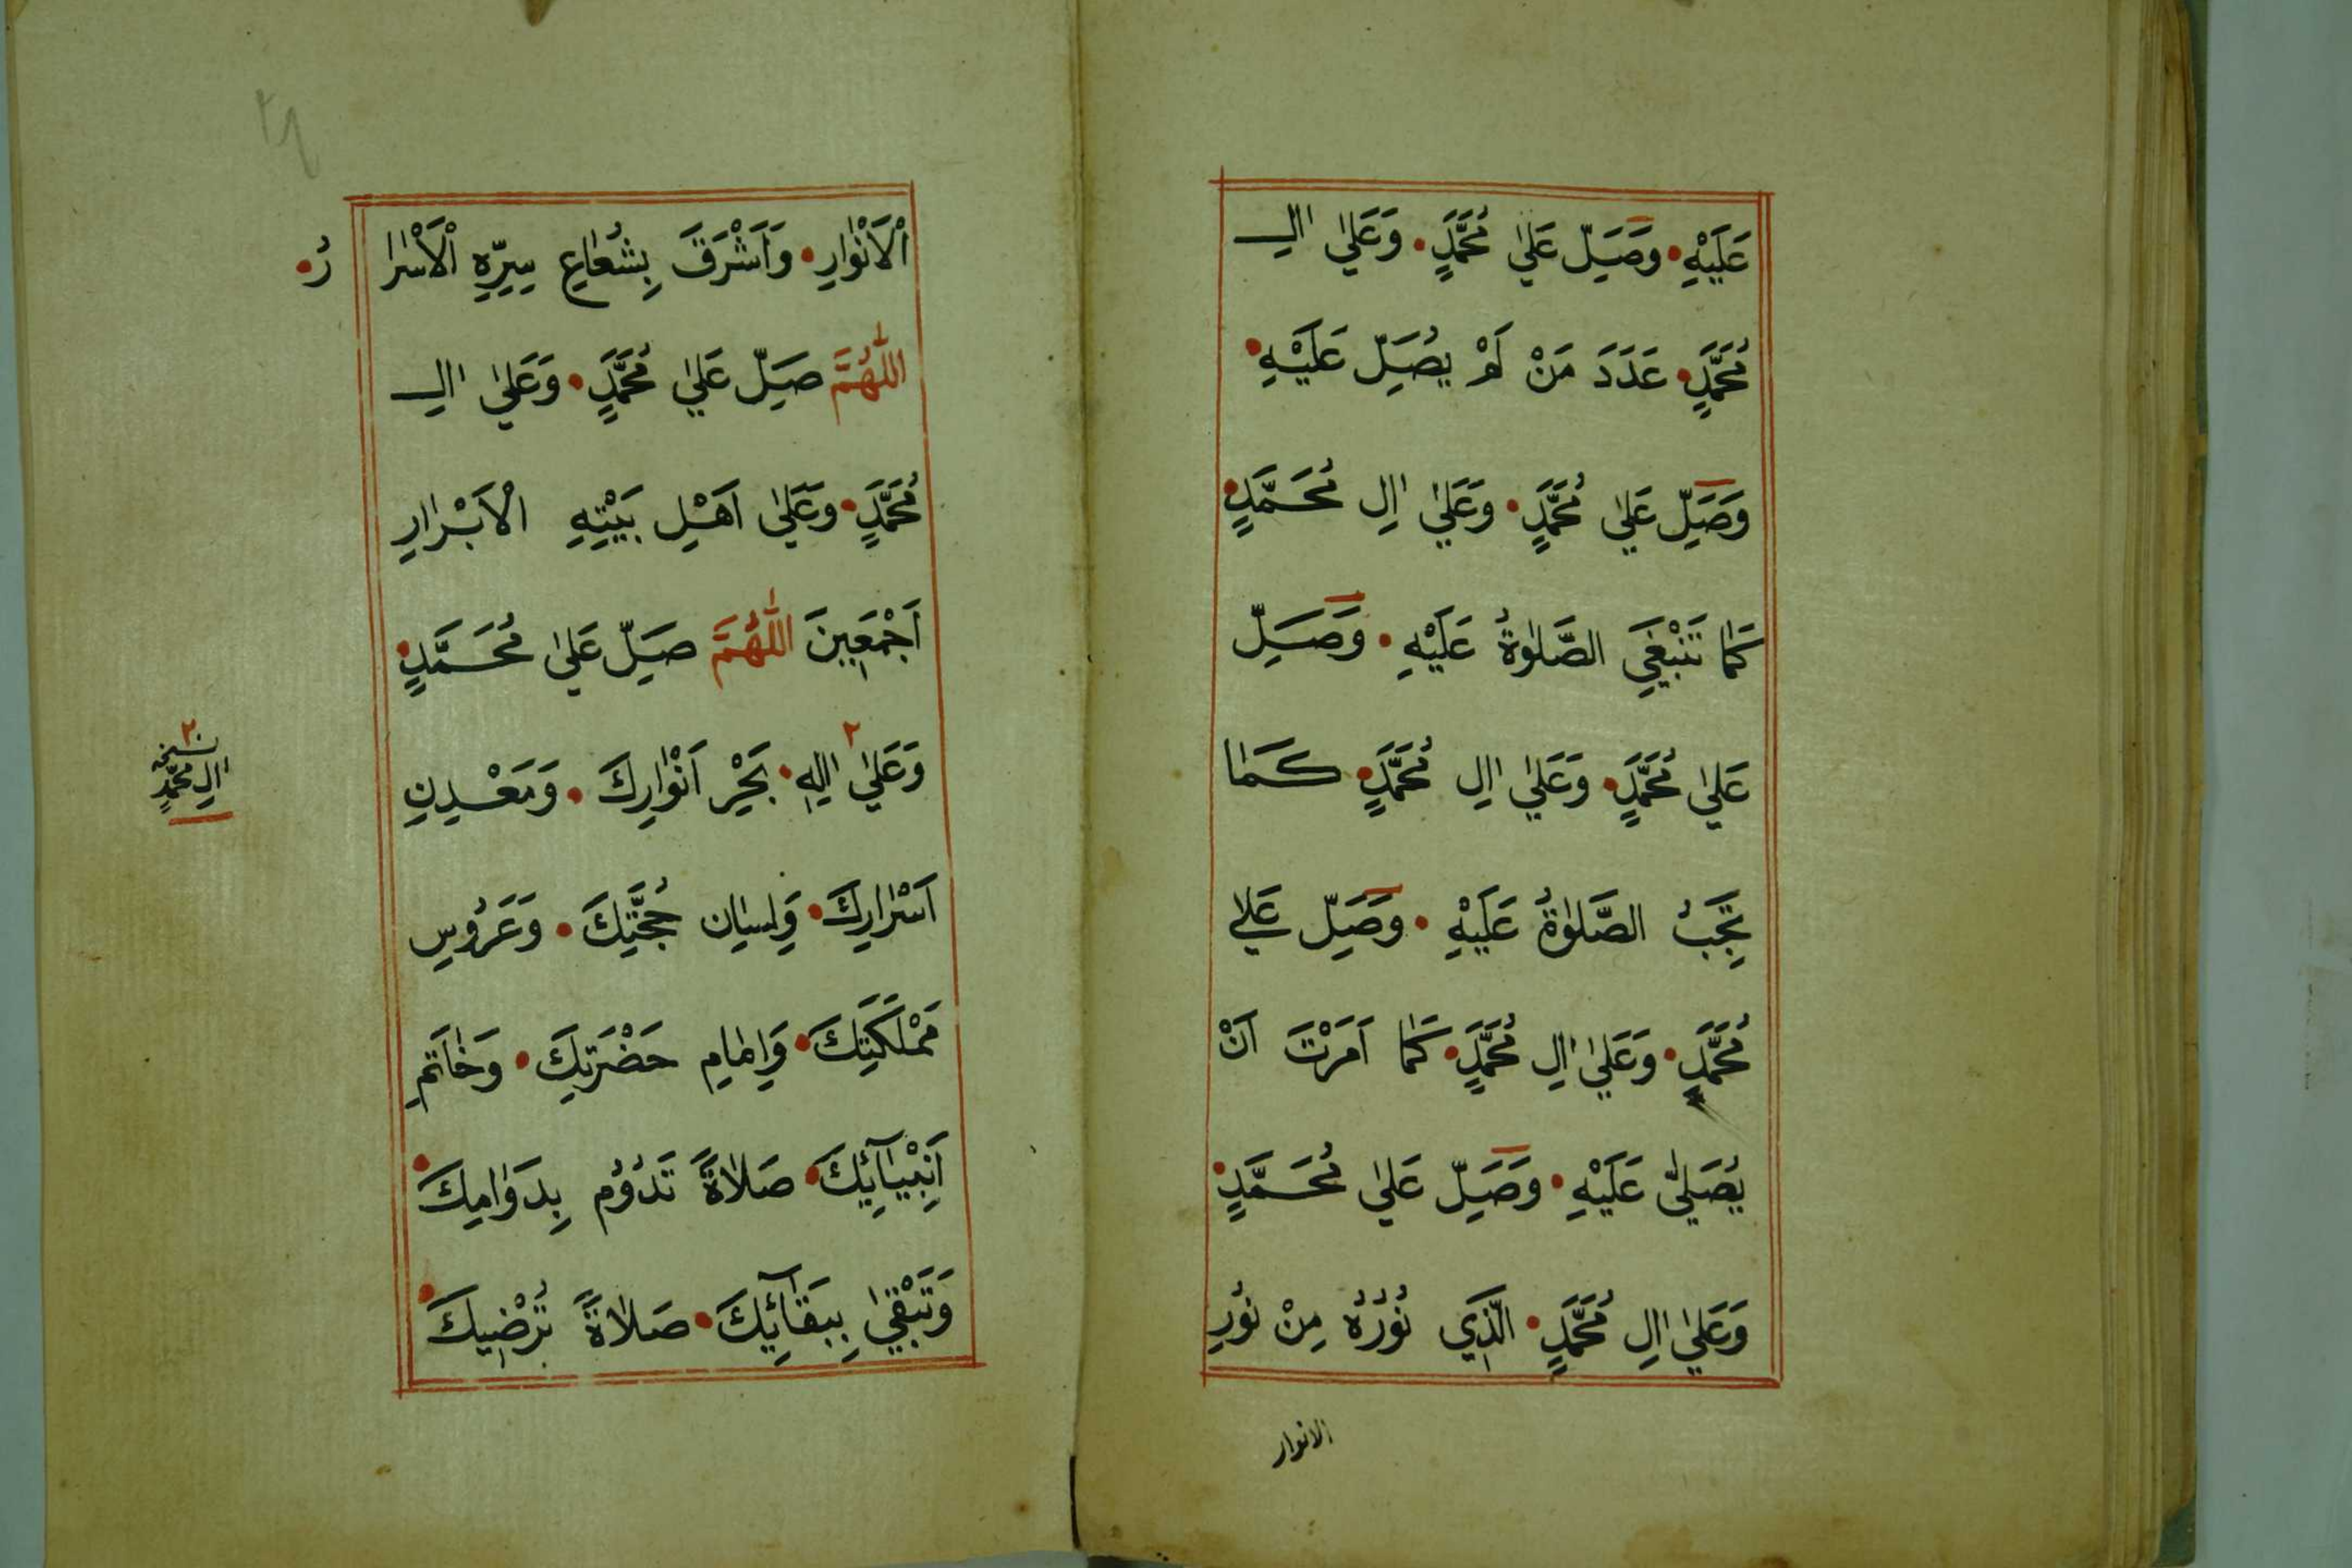 عَلَيْهِ • وَصَلِّ عَلٰي مُحَمَّدٍ • وَعَلٰي اٰلِ
مُحَمَّدٍ • عَدَدَ مَنْ لَمْ يُصَلِّ عَلَيْهِ •
وَصَلِّ عَلٰي مُحَمَّدٍ • وَعَلٰي اٰلِ مُحَمَّدٍ •
كَمٰا تَنْبَغِي الصَّلٰوةُ عَلَيْهِ • وَصَلِّ
عَلٰي مُحَمَّدٍ • وَعَلٰي اٰلِ مُحَمَّدٍ • كَمٰا
تَجِبُ الصَّلٰوةُ عَلَيْهِ • وَصَلِّ عَلٰي
مُحَمَّدٍ • وَعَلٰي اٰلِ مُحَمَّدٍ • كَمٰا اَمَرْتَ اَنْ
يُصَلّٰي عَلَيْهِ • وَصَلِّ عَلٰي مُحَمَّدٍ •
وَعَلٰي اٰلِ مُحَمَّدٍ • الَّذِي نُوْرُهُ مِنْ نُوْرِ
الانوار
٢٩
اْلاَنْوٰارِ • وَاَشْرَقَ بِشُعٰاعِ سِرِّهِ اْلاَسْرٰا رُ •
اَللّٰهُمَّ صَلِّ عَلٰي مُحَمَّدٍ • وَعَلٰي اٰلِ
مُحَمَّدٍ • وَعَلٰي اَهْلِ بَيْتِهِ اْلاَبْرٰارِ
اَجْمَعِينَ اَللّٰهُمَّ صَلِّ عَلٰي مُحَمَّدٍ •
وَعَلٰي اٰلِهِ ٢ • بَحْرِ اَنْوٰارِكَ • وَمَعْدِنِ
٢ نسخه
اٰلِ مُحَمَّدٍ
اَسْرٰارِكَ • وَلِسٰانِ حُجَّتِكَ • وَعَرُوْسِ
مَمْلَكَتِكَ • وَاِمٰامِ حَضْرَتِكَ • وَخٰاتَمِ
اَنْبِيٰآئِكَ • صَلاٰةً تَدُوْمُ بِدَوٰامِكَ •
وَتَبْقٰي بِبَقٰآئِكَ • صَلاٰةً تُرْضِيكَ •